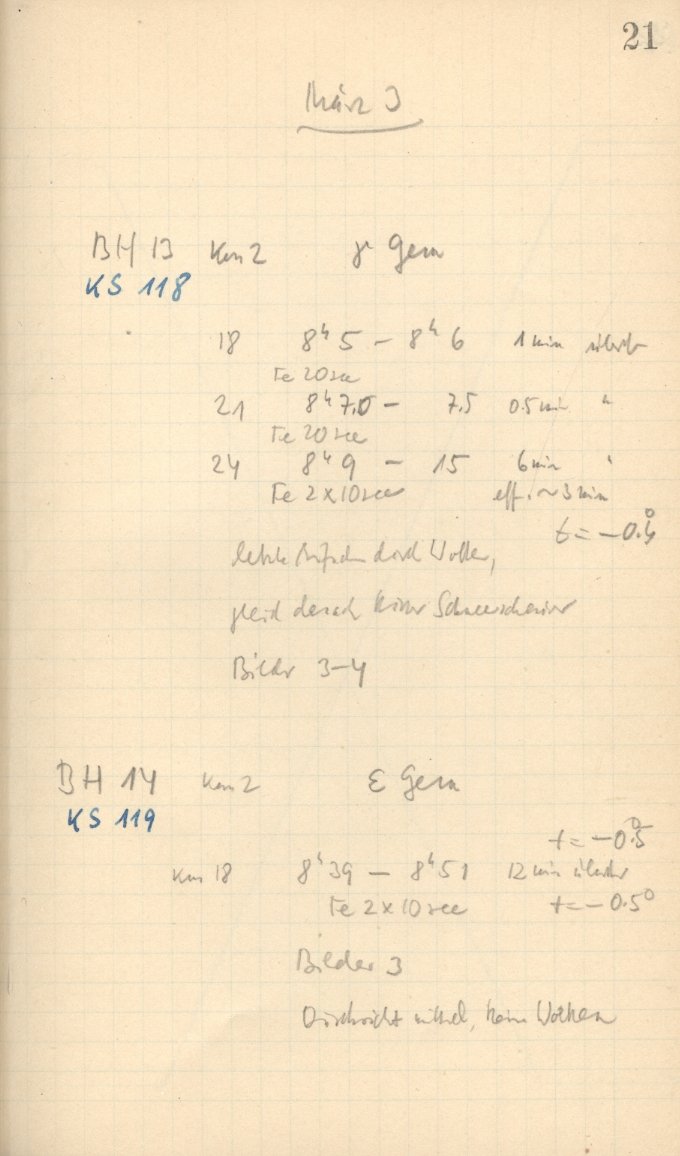 21
März 3
BH 13 Km 2 γ Gem
KS 118
18 8ʰ5 – 8ʰ6 1 min
Fe 20 sec
21 8ʰ7.0 – 7.5 0.5 min "
Fe 20 sec
24 8ʰ9 – 15 6 min "
Fe 2 × 10 sec eff. ~ 3 min
t = –0.4°
letzte Aufnahme durch Wolken,
gleich danach kleiner Schneeschauer
Bilder 3–4
BH 14 Km 2 ε Gem
KS 119
t = –0.5°
Km 18 8ʰ39 – 8ʰ51 12 min
Fe 2 × 10 sec t = –0.5°
Bilder 3
Durchsicht mittel, keine Wolken